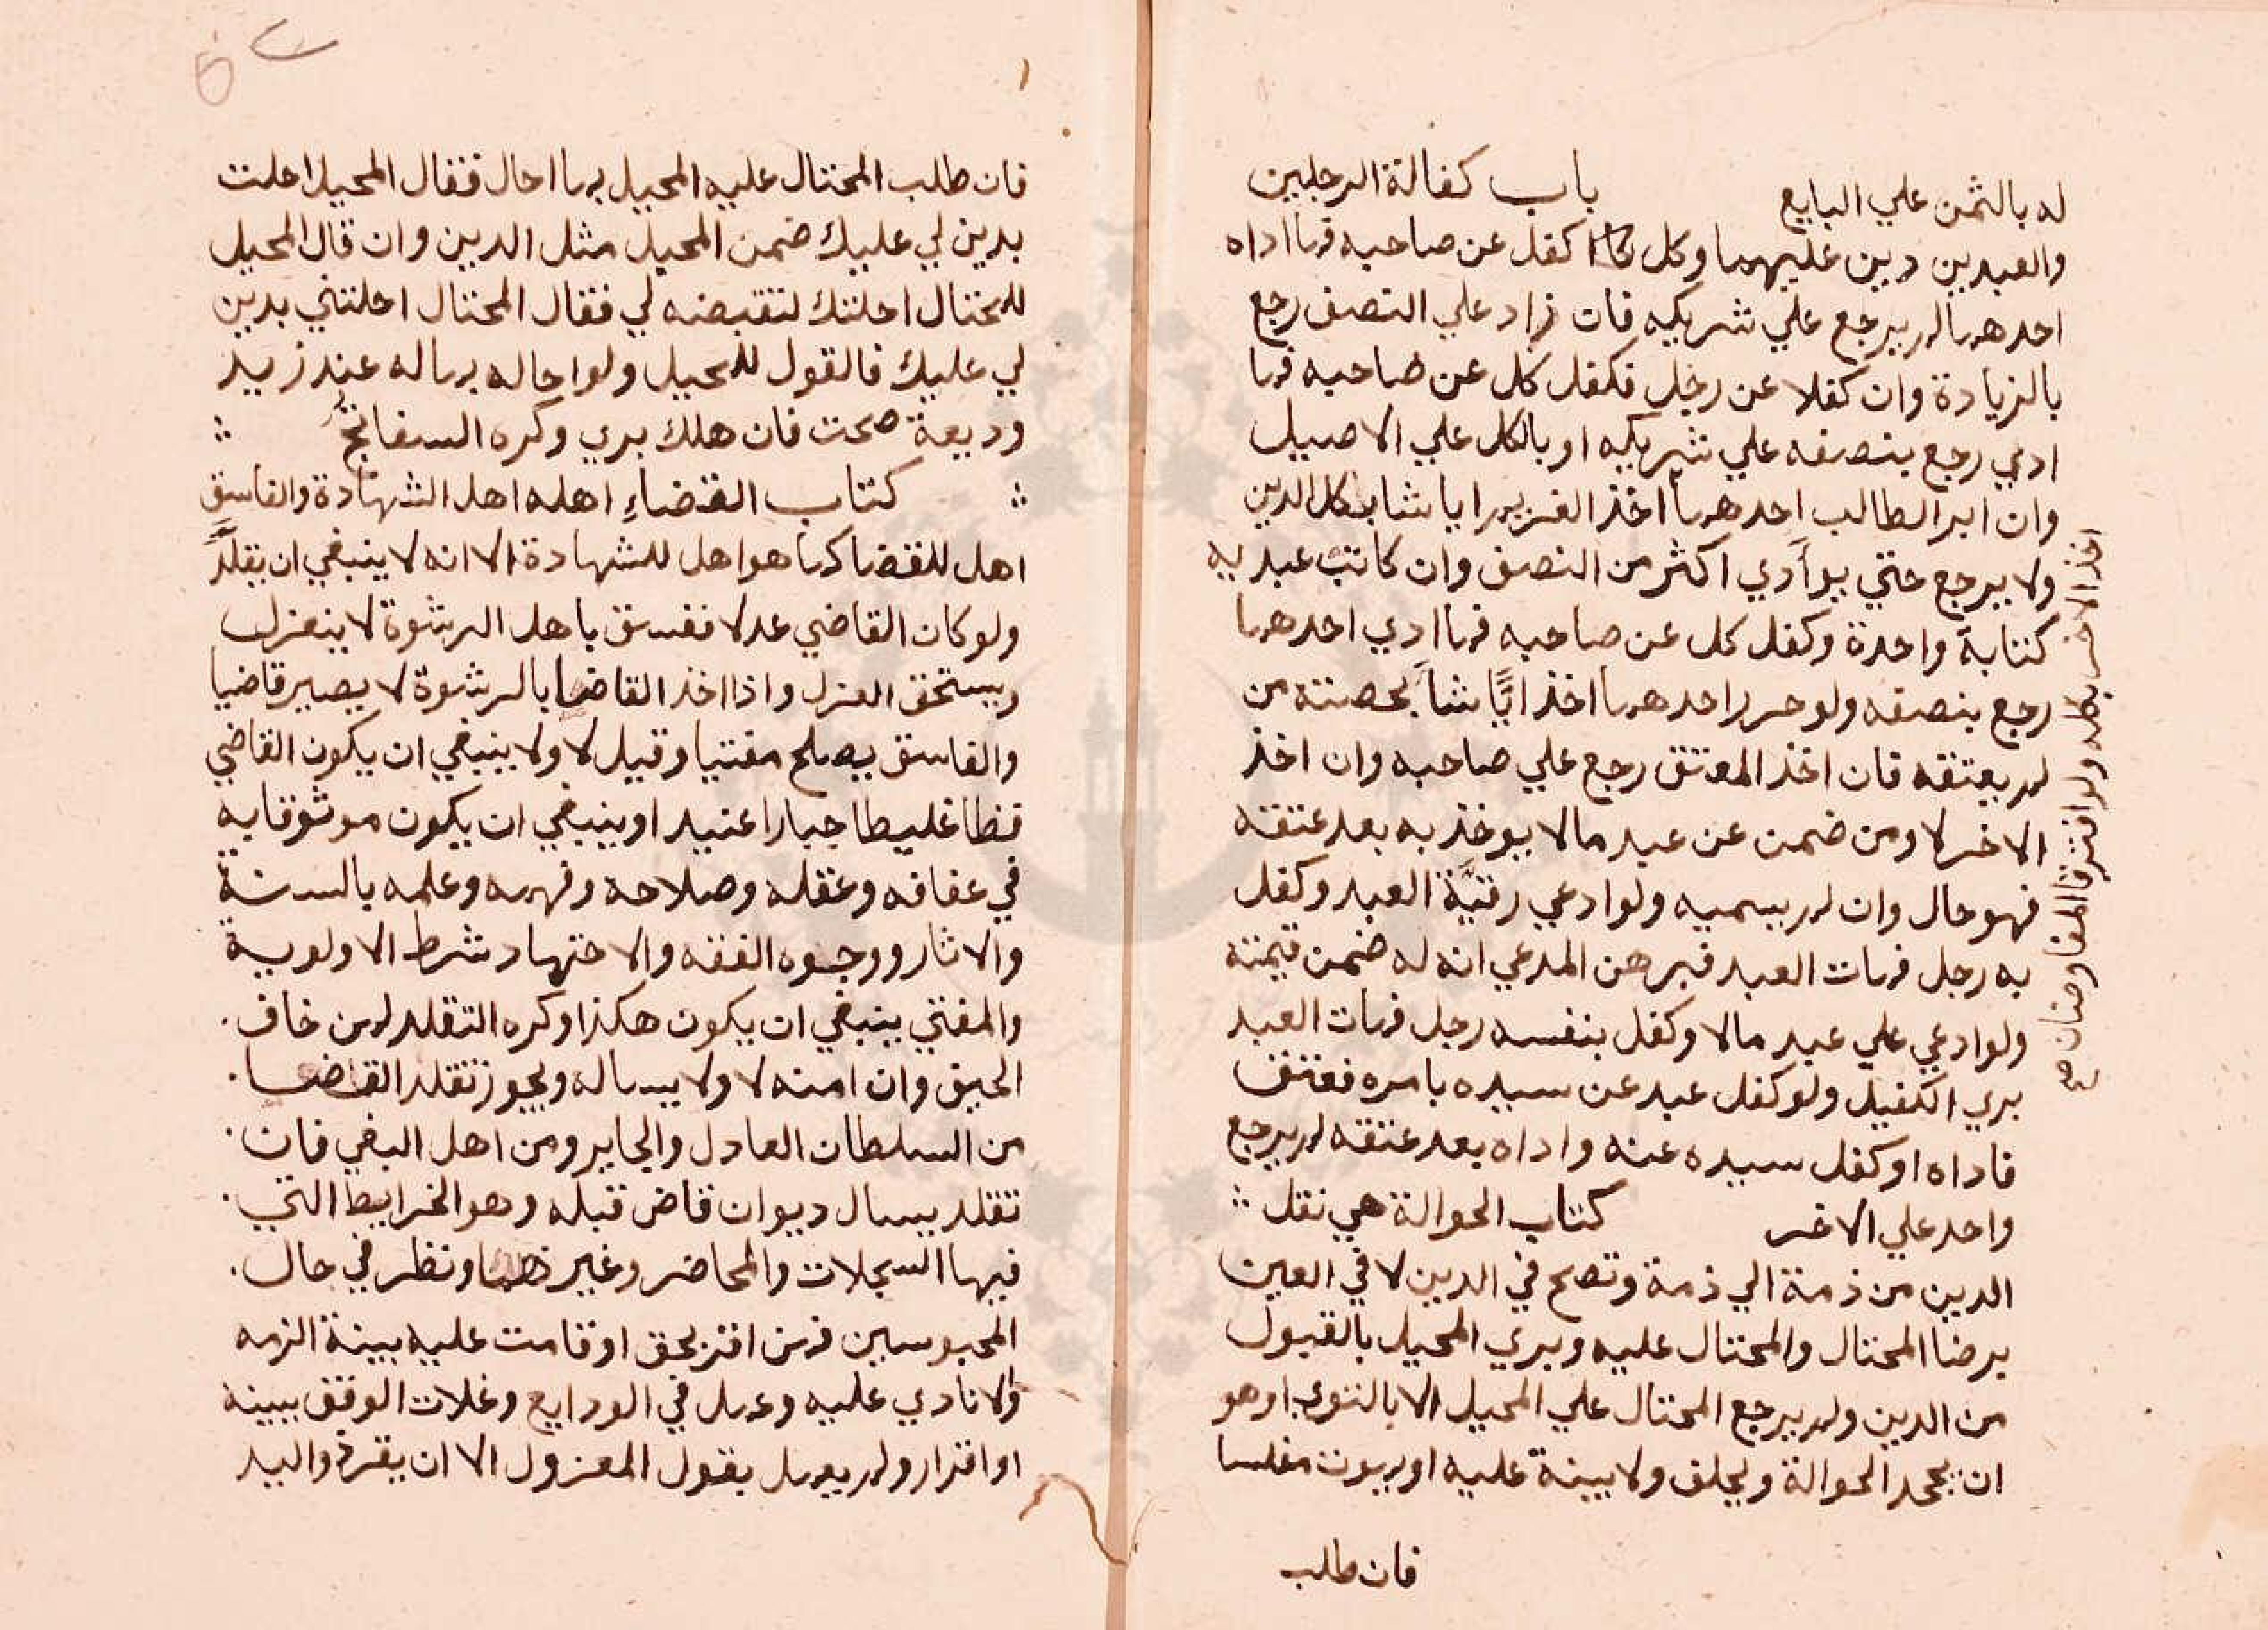 له بالثمن علي البايع باب كفالة الرجلين
والعبدين دين عليهما وكل كفل عن صاحبه فما اداه
احدهما لم يرجع علي شريكه فان زاد علي النصف رجع
بالزيادة وان كفلا عن رجل فكفل كل عن صاحبه فما
ادي رجع بنصفه علي شريكه او بالكل علي الاصيل
وان ابرا الطالب احدهما اخذ الاخر بكله ولو افترقا المفاوضان صح اخذ الغريم ايا شا بكل الدين
ولا يرجع حتي يوأدي اكثر من النصف وان كاتب عبديه
كتابة واحدة وكفل كل عن صاحبه فما ادي احدهما
رجع بنصفه ولو حرر احدهما اخذ ايًّا شاء بحصته من
لم يعتقه فان اخذ المعتق رجع علي صاحبه وان اخذ
الاخر لا ومن ضمن عن عبد مالا يوخذ به بعد عتقه
فهو حال وان لم يسميه ولو ادعي رقبة العبد وكفل
به رجل فمات العبد فبرهن المدعي انه له ضمن قيمته
ولو ادعي علي عبد مالا وكفل بنفسه رجل فمات العبد
بري الكفيل ولو كفل عبد عن سيده بامره فعتق
فاداه او كفل سيده عنه واداه بعد عتقه لم يرجع
واحد علي الاخر كتاب الحوالة هي نقل
الدين من ذمة الي ذمة وتصح في الدين لا في العين
برضا المحتال والمحتال عليه وبري المحيل بالقبول
من الدين ولم يرجع المحتال علي المحيل الا بالتوي وهو
ان يجحد الحوالة ويحلف ولا بينة عليه او يموت مفلسا
فان طلب
فان طلب المحتال عليه المحيل بما احال فقال المحيل احلت
بدين لي عليك ضمن المحيل مثل الدين وان قال المحيل
للمحتال احلتك لتقبضه لي فقال المحتال احلتني بدين
لي عليك فالقول للمحيل ولو احاله بماله عند زيد
وديعة صحت فان هلك بري وكره السفاتج
كتاب القضاء اهله اهل الشهادة والفاسق
اهل للقضا كما هو اهل للشهادة الا انه لا ينبغي ان يقلد
ولو كان القاضي عدلا ففسق باهل الرشوة لا ينعزل
ويستحق العزل واذا اخذ القاضا بالرشوة لا يصير قاضيا
والفاسق يصلح مفتيا وقيل لا ولا ينبغي ان يكون القاضي
فظا غليظا جبارا عنيدا وينبغي ان يكون موثوقا به
في عفافه وعقله وصلاحه وفهمه وعلمه بالسنة
والاثار ووجوه الفقه والاجتهاد شرط الاولوية
والمفتي ينبغي ان يكون هكذا وكره التقلد لمن خاف
الحيق وان امنه لا ولا يساله ويجوز تقلد القضا
من السلطان العادل والجاير ومن اهل البغي فان
تقلد يسال ديوان قاض قبله وهو الخرايط التي
فيها السجلات والمحاضر وغيرهما ونظر في حال
المحبوسين فمن اقر بحق او قامت عليه بينة الزمه
والا نادي عليه وعمل في الودايع وغلات الوقف ببينه
او اقرار ولم يعمل بقول المعزول الا ان يقر ذو اليد